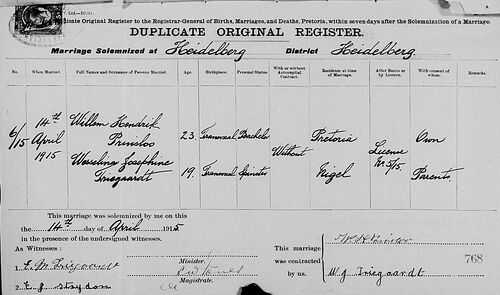 T. Ltd.—
icate Original Register to the Registrar-General of Births, Marriages, and Deaths, Pretoria, within seven days after the Solemnization of a Marriage.
DUPLICATE ORIGINAL REGISTER.
Marriage Solemnized at Heidelberg District Heidelberg
No. When Married. Full Names and Surname of Persons Married. Age. Birthplace. Personal Status. With or without Antenuptial Contract. Residence at time of Marriage. After Banns or by Licence. With consent of whom. Remarks.
14th Willem Hendrik
6/15 April Prinsloo 23. Transvaal Bachelor Pretoria Own
1915 Without License
Josephine No 5/15.
Triegaardt 19. Transvaal Spinster Nigel Parents
This marriage was solemnized by me on this
the 14th day of April 1915
in the presence of the undersigned witnesses.
As Witnesses :
Minister.
Magistrate.
This marriage
was contracted
by us.
W J Triegaardt
768
1. E. M. Triegaardt
2. E. J.